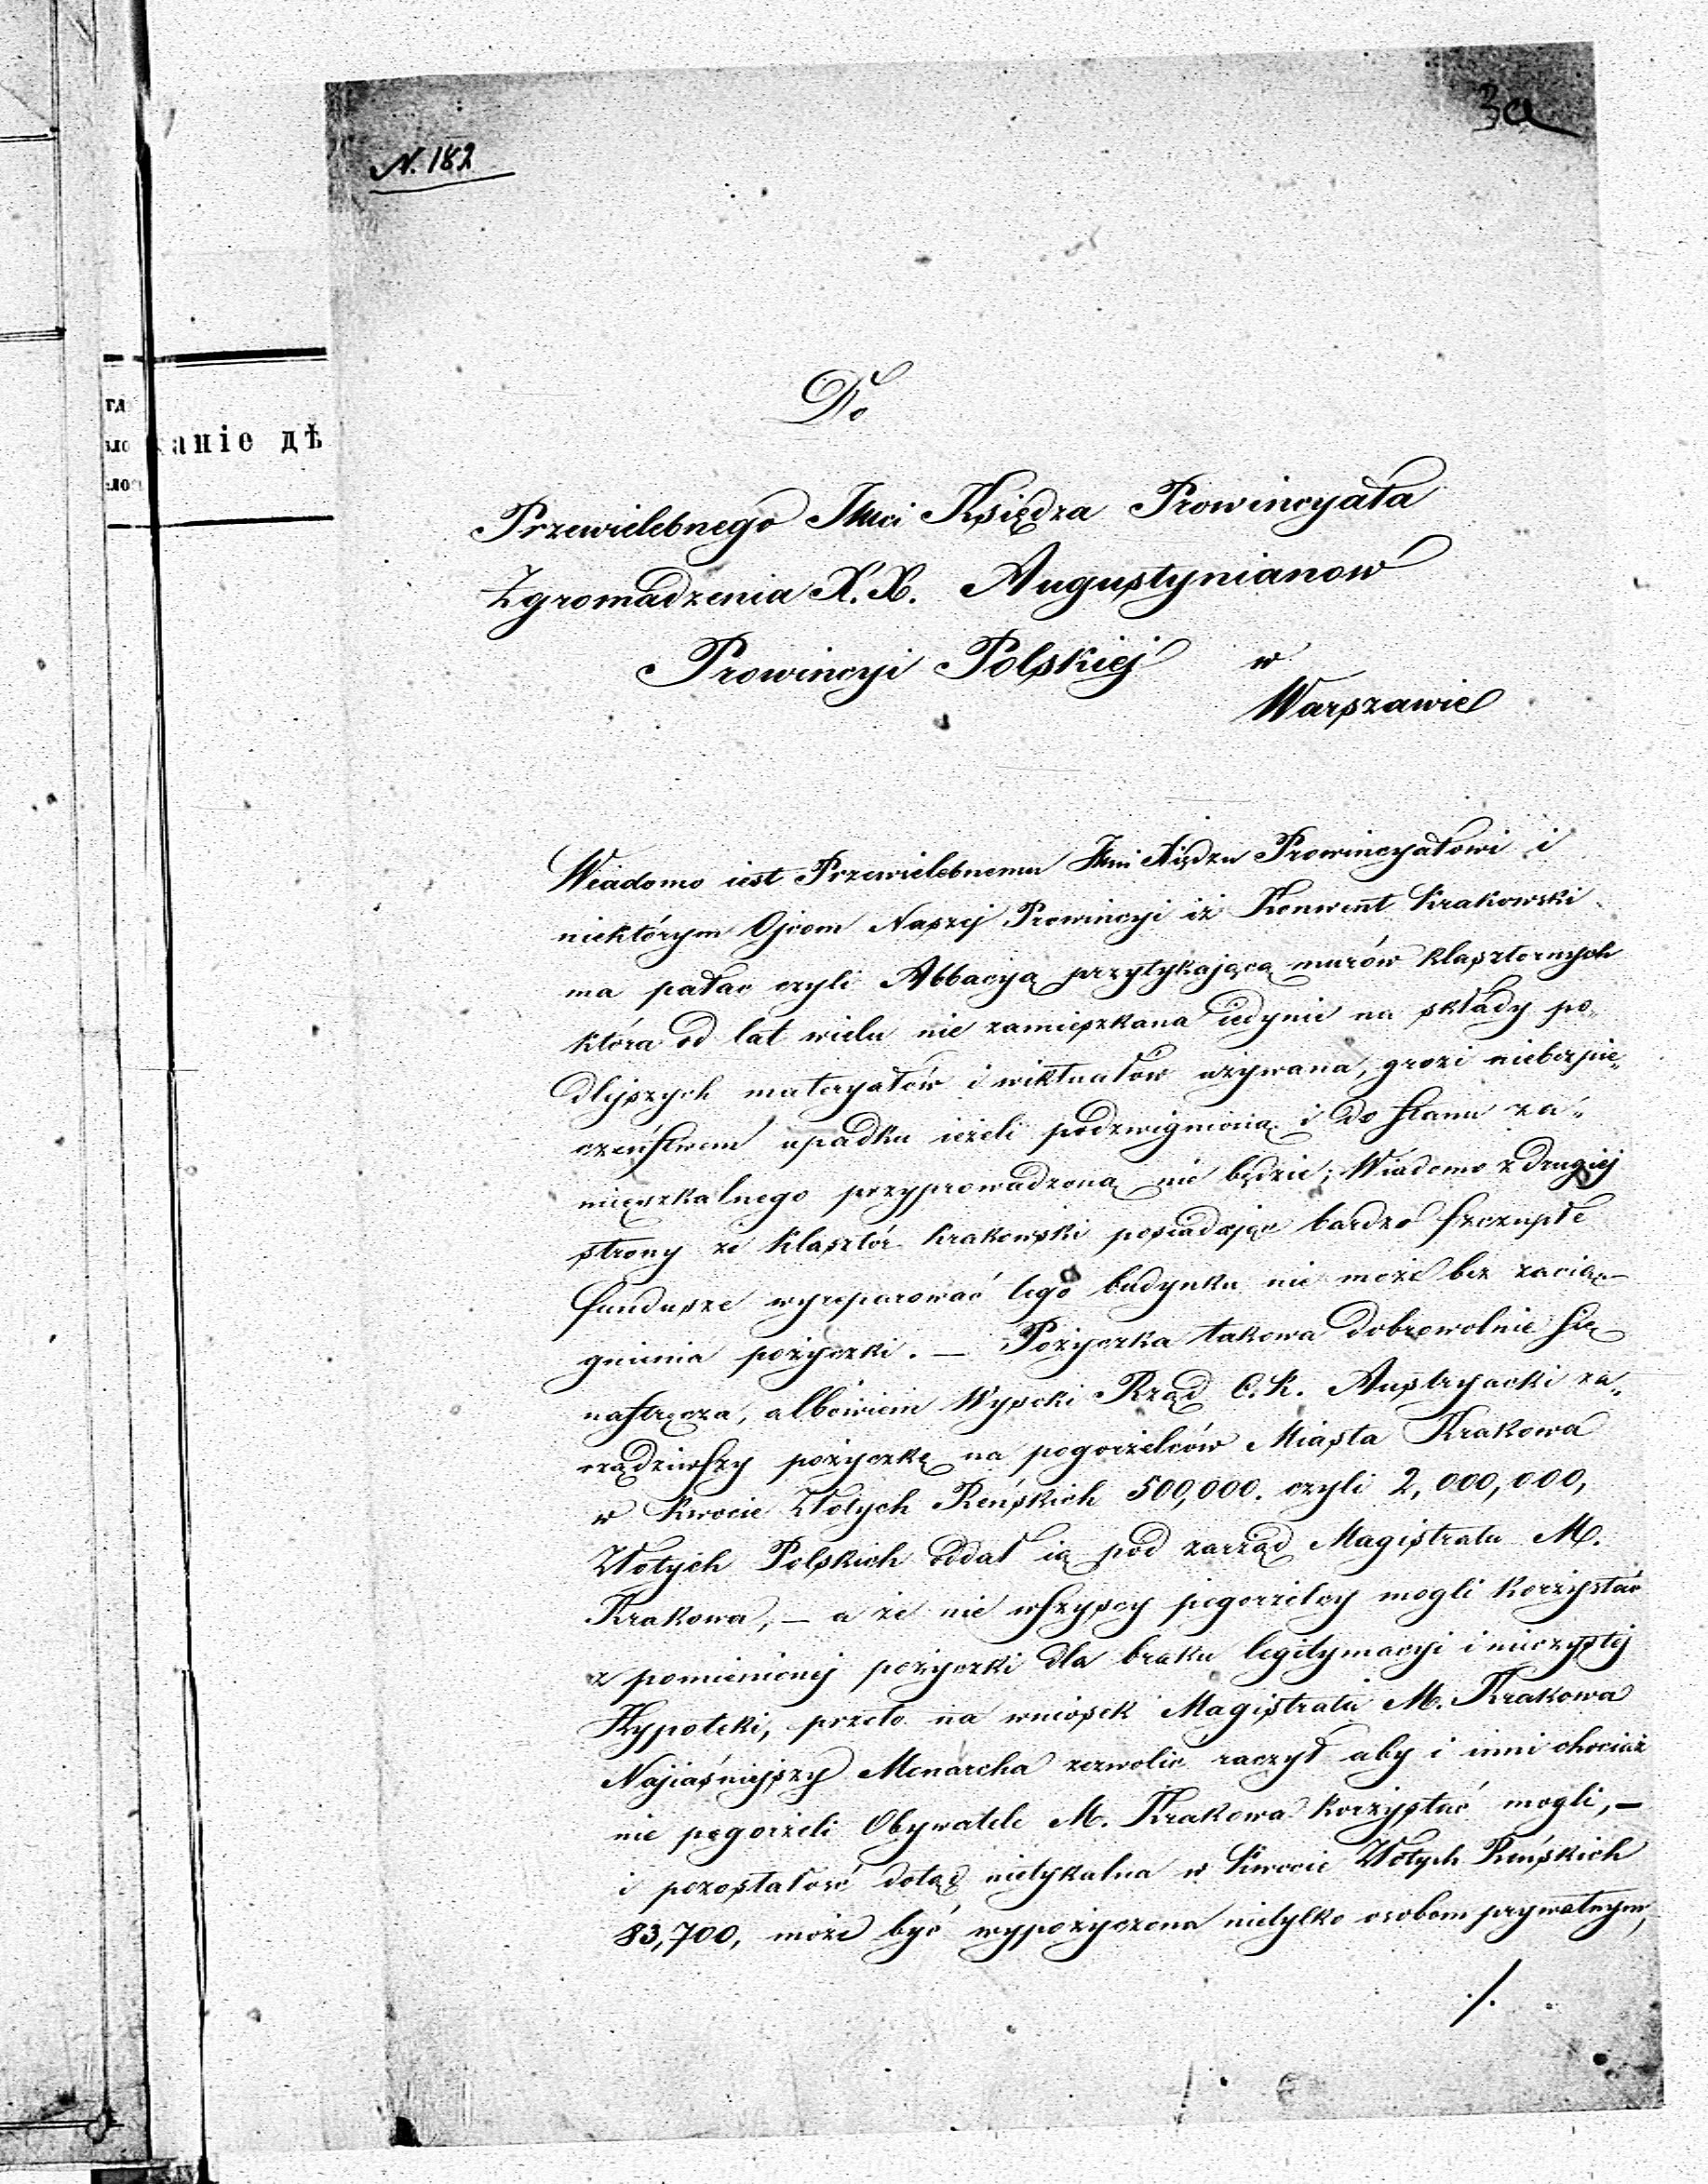 3a
N. 182
аніе дѣ
Do
Przewielebnego Jmci Księdza Prowincyała
Zgromadzenia X. X. Augustynianow
Prowincyi Polskiej w
Warszawie
Wiadomo iest Przewielebnemu Jmci Xiędzu Prowincyałowi i
niektórym Ojcom Naszej Prowincyi iż Konwent Krakowski
ma pałac czyli Abbacyą przytykającą murów klasztornych
która od lat wielu nie zamieszkana iedynie na składy po„
dlejszych materyałów i wiktuałów używana, grozi niebezpie„
czeństwem upadku ieżeli podzwignioną i do stanu za„
mieszkalnego przyprowadzoną nie będzie; Wiadomo z drugiej
strony że klasztór Krakowski posiadając bardzo szczupłe
fundusze wyreparować tego budynku nie może bez zacią„
gnienia pożyczki. — Pożyczka takowa dobrowolnie się
nastręcza, albowiem Wysoki Rząd C. K. Austryacki za„
rządziwszy pożyczkę na pogorzelców Miasta Krakowa
w kwocie Złotych Reńskich 500,000. czyli 2,000,000,
Złotych Polskich oddał ią pod zarząd Magistratu M.
Krakowa, — a że nie wszyscy pogorzelcy mogli korzystać
z pomienionej pożyczki dla braku legitymacyi i nieczystej
Hypoteki, przeto na wniosek Magistratu M. Krakowa
Najiaśniejszy Monarcha zezwolić raczył aby i inni chociaż
nie pogorzeli Obywatele M. Krakowa korzystać mogli, —
i pozostałość dotąd nietykalna w Kwocie Złotych Reńskich
83,700, może być wypożyczona nietylko osobom prywatnym,
./.